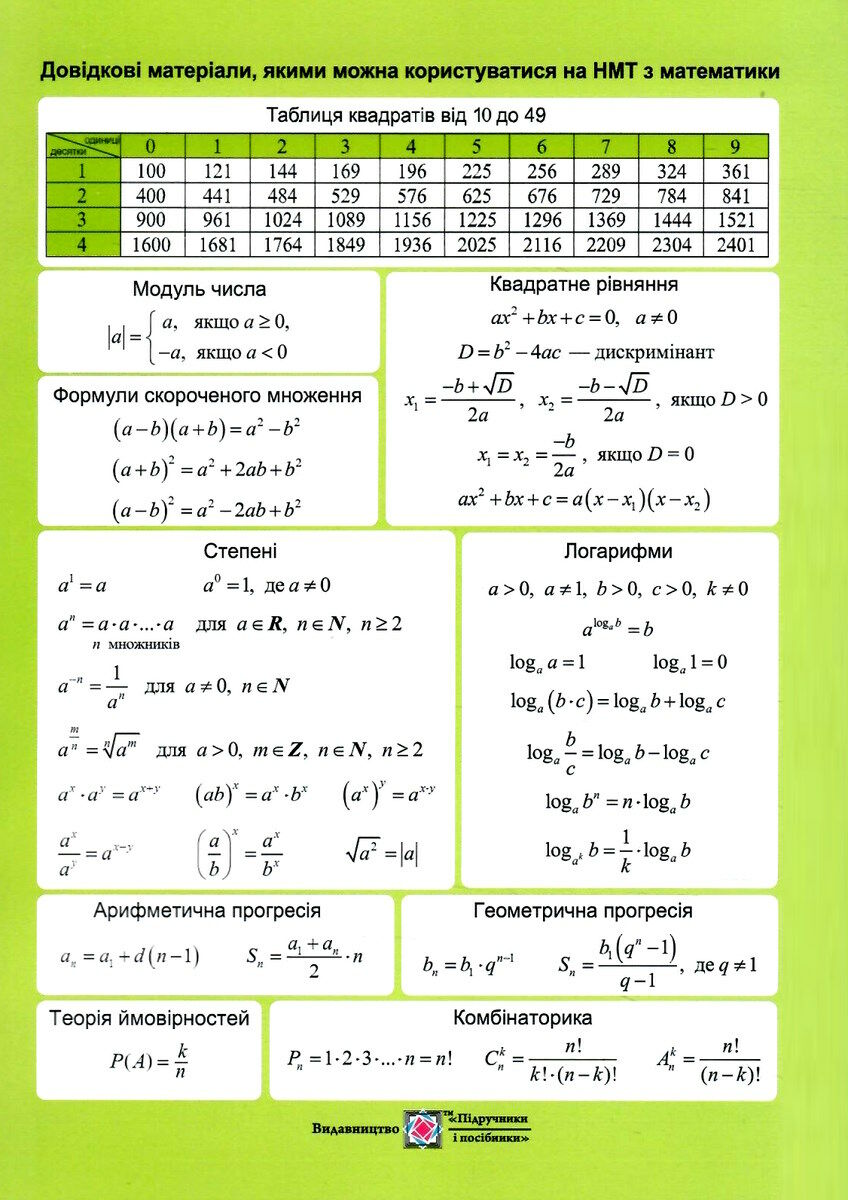 Довідкові матеріали, якими можна користуватися на НМТ з математики
Таблиця квадратів від 10 до 49
десятки одиниці 0 1 2 3 4 5 6 7 8 9
1 100 121 144 169 196 225 256 289 324 361
2 400 441 484 529 576 625 676 729 784 841
3 900 961 1024 1089 1156 1225 1296 1369 1444 1521
4 1600 1681 1764 1849 1936 2025 2116 2209 2304 2401
Модуль числа
|a| = { a, якщо a ≥ 0,
−a, якщо a < 0
Формули скороченого множення
(a − b)(a + b) = a² − b²
(a + b)² = a² + 2ab + b²
(a − b)² = a² − 2ab + b²
Квадратне рівняння
ax² + bx + c = 0, a ≠ 0
D = b² − 4ac — дискримінант
x₁ = (−b + √D)/(2a), x₂ = (−b − √D)/(2a), якщо D > 0
x₁ = x₂ = −b/(2a), якщо D = 0
ax² + bx + c = a(x − x₁)(x − x₂)
Степені
a¹ = a a⁰ = 1, де a ≠ 0
aⁿ = a · a · ... · a для a ∈ R, n ∈ N, n ≥ 2
n множників
a⁻ⁿ = 1/aⁿ для a ≠ 0, n ∈ N
a^(m/n) = ⁿ√(a^m) для a > 0, m ∈ Z, n ∈ N, n ≥ 2
a^x · a^y = a^(x+y) (ab)^x = a^x · b^x (a^x)^y = a^(x·y)
a^x/a^y = a^(x−y) (a/b)^x = a^x/b^x √(a²) = |a|
Логарифми
a > 0, a ≠ 1, b > 0, c > 0, k ≠ 0
a^(log_a b) = b
log_a a = 1 log_a 1 = 0
log_a (b · c) = log_a b + log_a c
log_a b/c = log_a b − log_a c
log_a bⁿ = n · log_a b
log_(a^k) b = 1/k · log_a b
Арифметична прогресія
aₙ = a₁ + d(n − 1) Sₙ = (a₁ + aₙ)/2 · n
Геометрична прогресія
bₙ = b₁ · qⁿ⁻¹ Sₙ = b₁(qⁿ − 1)/(q − 1), де q ≠ 1
Теорія ймовірностей
P(A) = k/n
Комбінаторика
Pₙ = 1 · 2 · 3 · ... · n = n! C_n^k = n!/(k! · (n − k)!) A_n^k = n!/(n − k)!
Видавництво ™ «Підручники
і посібники»